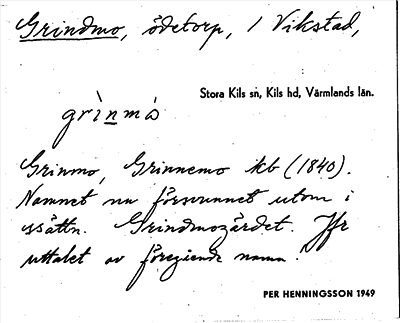 Grindmo, ödetorp, / Vikstad,
Stora Kils sn, Kils hd, Värmlands län.
grìnmó
Grinmo, Grinnemo kb (1840).
Namnet nu försvunnet utom i
ssättn. Grindmogärdet. Jfr
uttalet av föregående namn.
PER HENNINGSSON 1949